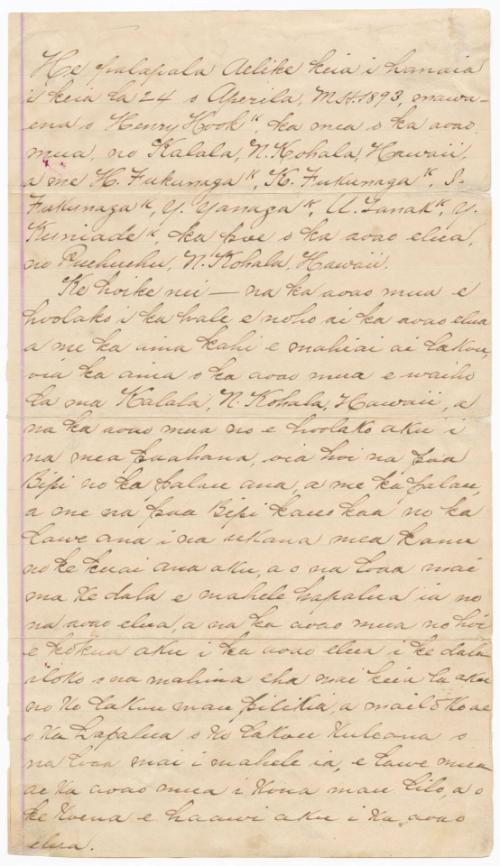 He palapala Aelike keia i hanaia
i keia la 24 o Aperila, M.H. 1893, mawa-
ena o Henry Hook ᵏ ka mea o ka aoao
mua, no Kalala, N. Kohala, Hawaii,
a me H. Fukunaga ᵏ, K. Fukunaga ᵏ, S.
Fukunaga ᵏ, Y. Yanaga ᵏ, U. Tanak ᵏ, Y.
Kuniade ᵏ, ka poe o ka aoao elua,
no Puehuehu, N. Kohala, Hawaii.
Ke hoike nei — na ka aoao mua e
hoolako i ka hale e noho ai ka aoao elua
a me ka aina kahi e mahiai ai lakou,
oia ka aina o ka aoao mua e waiho
la ma Kalala, N. Kohala, Hawaii, a
na ka aoao mua no e hoolako aku i
na mea paahana, oia hoi na paa
Bipi no ka palau ana, a me ka palau,
a me na paa Bipi kauo kaa no ka
lawe ana i na ukana mea kanu
no ke kuai ana aku, a o na loaa mai
ma ke dala e mahele hapalua ia no
na aoao elua, a na ka aoao mua no hoi
e kokua aku i ka aoao elua i ke dala
iloko o na mahina eha mai keia la aku
no ko lakou mau pilikia, a mailoko ae
o ka hapalua o ko lakou kuleana o
na loaa mai i mahele ia, e lawe mua
ae ka aoao mua i kona mau lilo, a o
ke koena e haawi aku i ka aoao
elua.